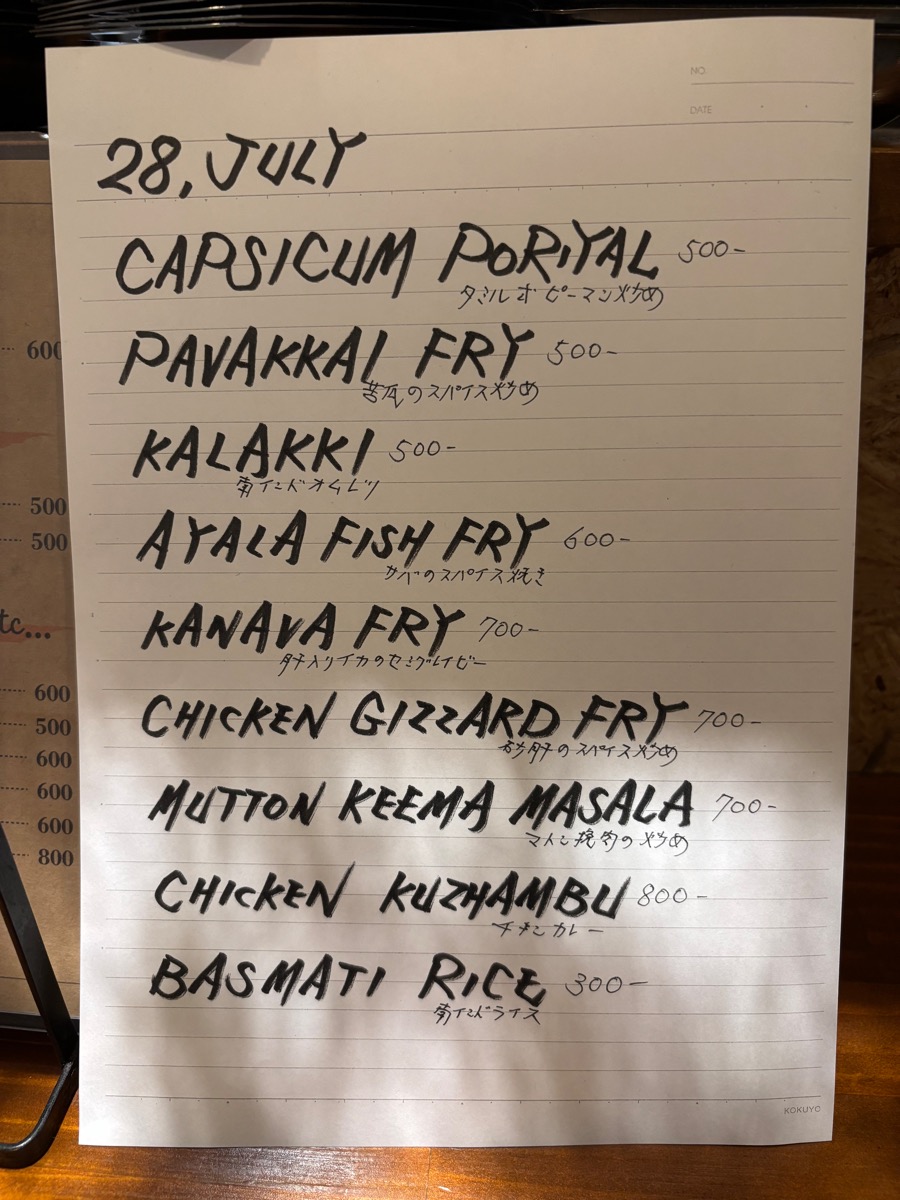 NO.
DATE
28, JULY
CAPSICUM PORIYAL 500-
タミル ピーマン炒め
PAVAKKAI FRY 500-
苦瓜のスパイス炒め
KALAKKI 500-
南インドオムレツ
AYALA FISH FRY 600-
サバのスパイス焼き
KANAVA FRY 700-
肝入りイカのセミグレイビー
CHICKEN GIZZARD FRY 700-
砂肝のスパイス炒め
MUTTON KEEMA MASALA 700-
マトン挽肉の炒め
CHICKEN KUZHAMBU 800-
チキンカレー
BASMATI RICE 300-
南インドライス
KOKUYO
600
500
500
tc...
600
500
600
600
600
800